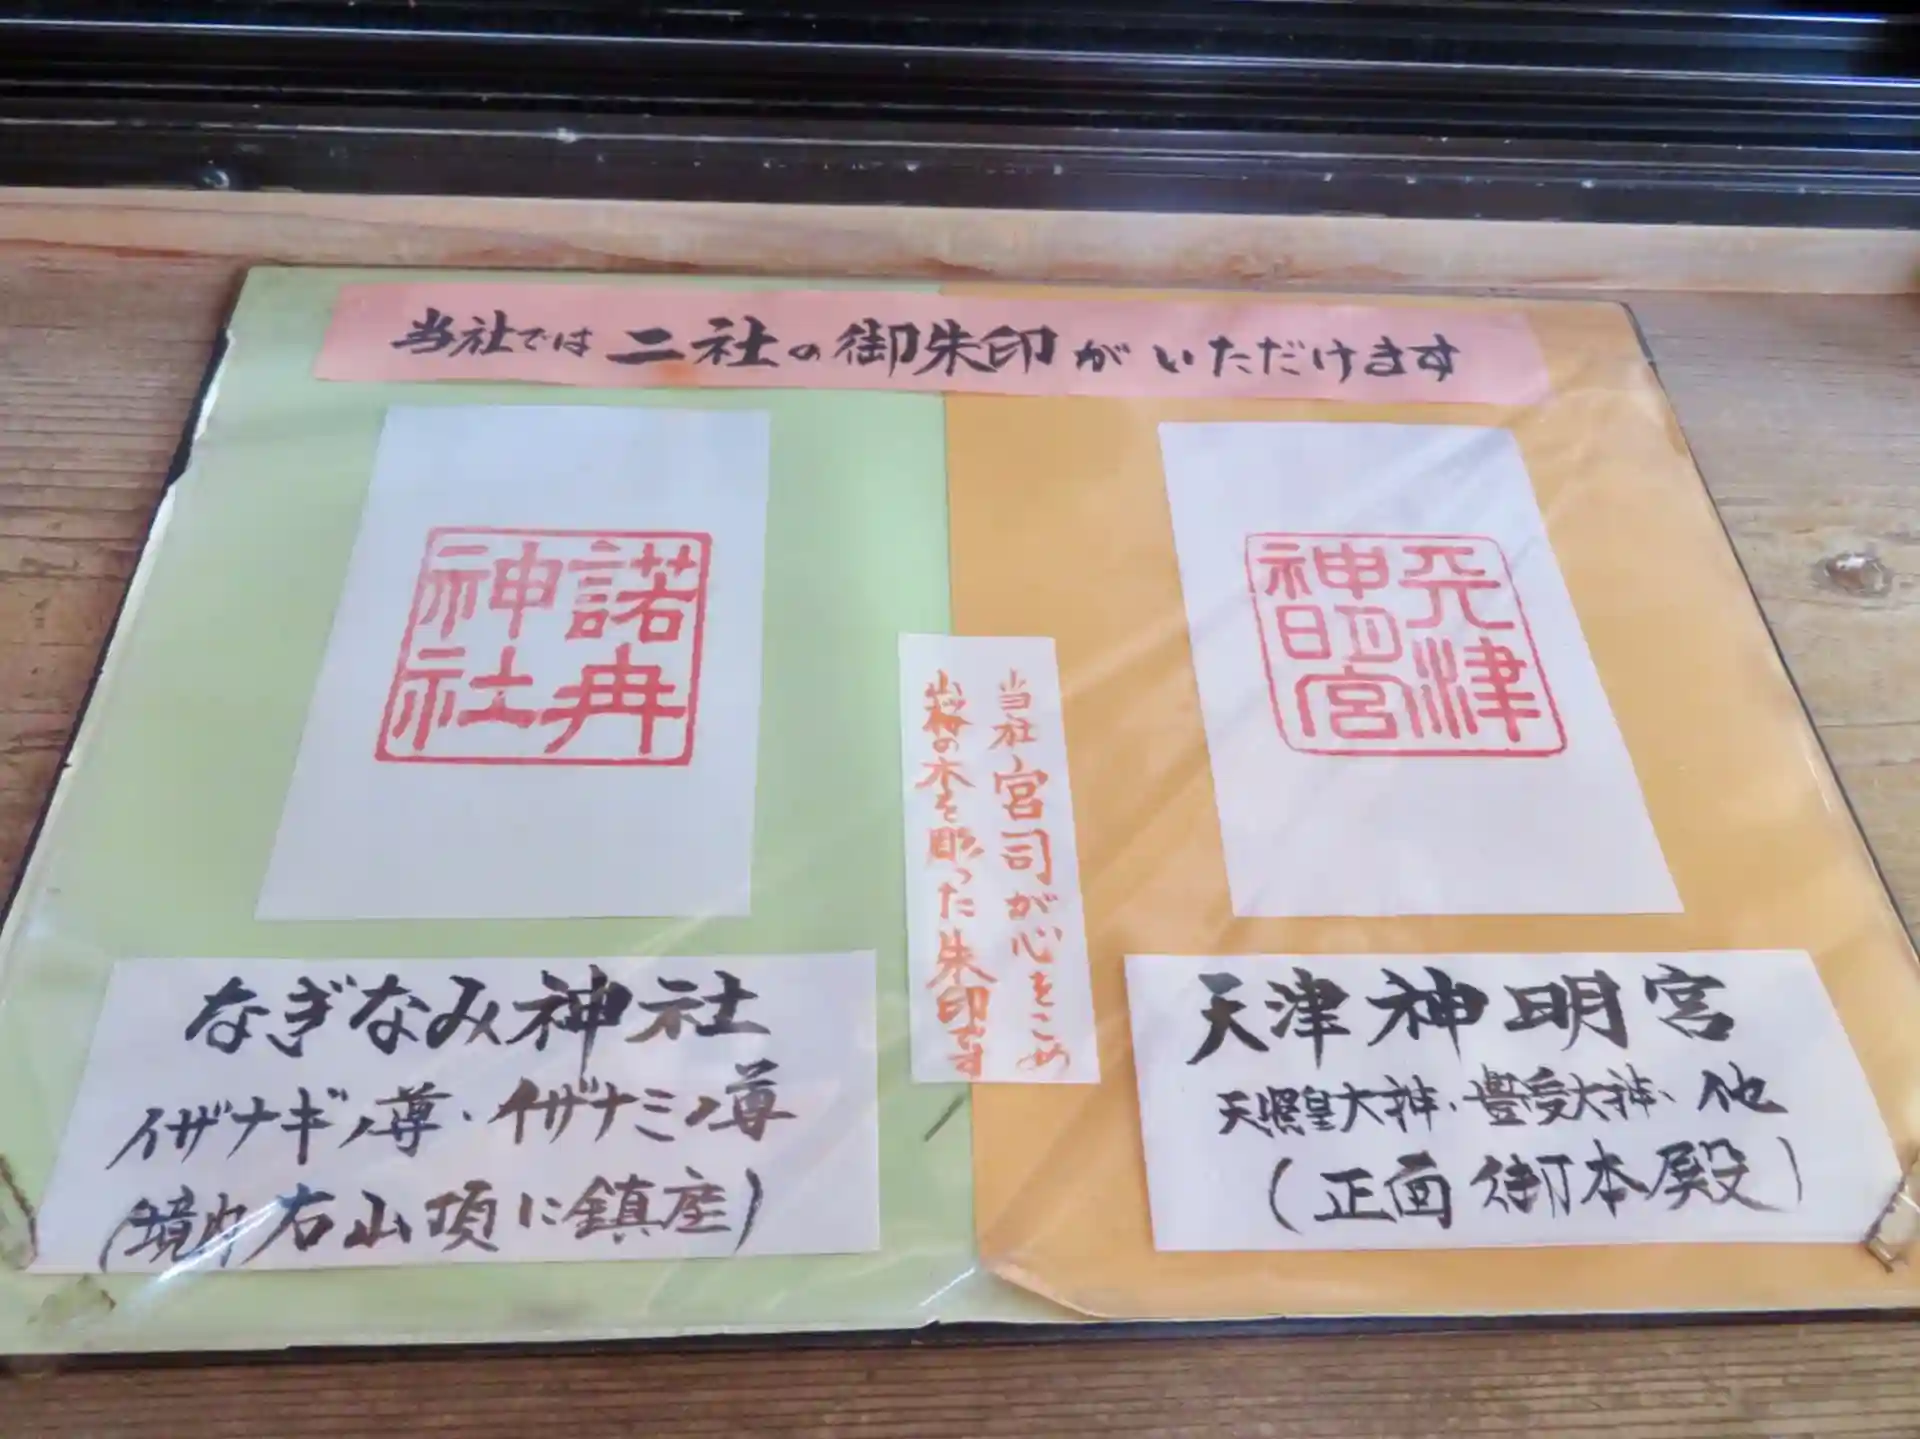 当社では二社の御朱印がいただけます
諾冉
神社
天津
神明宮
当社宮司が心をこめ
山桜の木を彫った朱印です
なぎなみ神社
イザナギノ尊・イザナミノ尊
(境内右山頂に鎮座)
天津神明宮
天照皇大神・豊受大神、他
(正面御本殿)